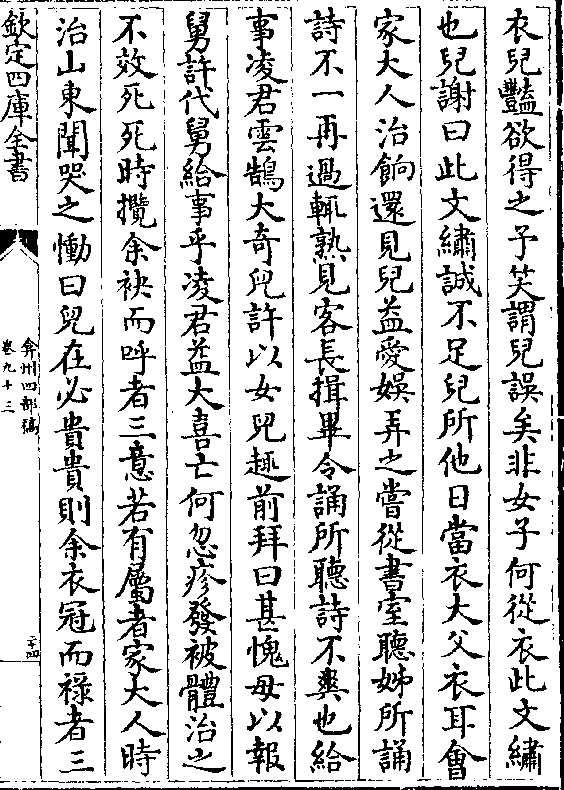 衣兒豔欲得之予笑謂兒誤矣非女子何從衣此文繡
也兒謝曰此文繡誠不足兒所他日當衣大父衣耳會
家大人治餉還見兒益愛娛弄之嘗從書室聽姊所誦
詩不一再過輒熟見客長揖畢令誦所聽詩不爽也給
事凌君雲鵠大奇兒許以女兒趣前拜曰甚愧毋以報
舅許代舅給事乎凌君益大喜亡何忽疹發被體治之
不效死死時攬余袂而呼者三意若有屬者家大人時
治山東聞哭之慟曰兒在必貴貴則余衣冠而祿者三
欽定四庫全書
弇州四部稿
卷九十三
二十四